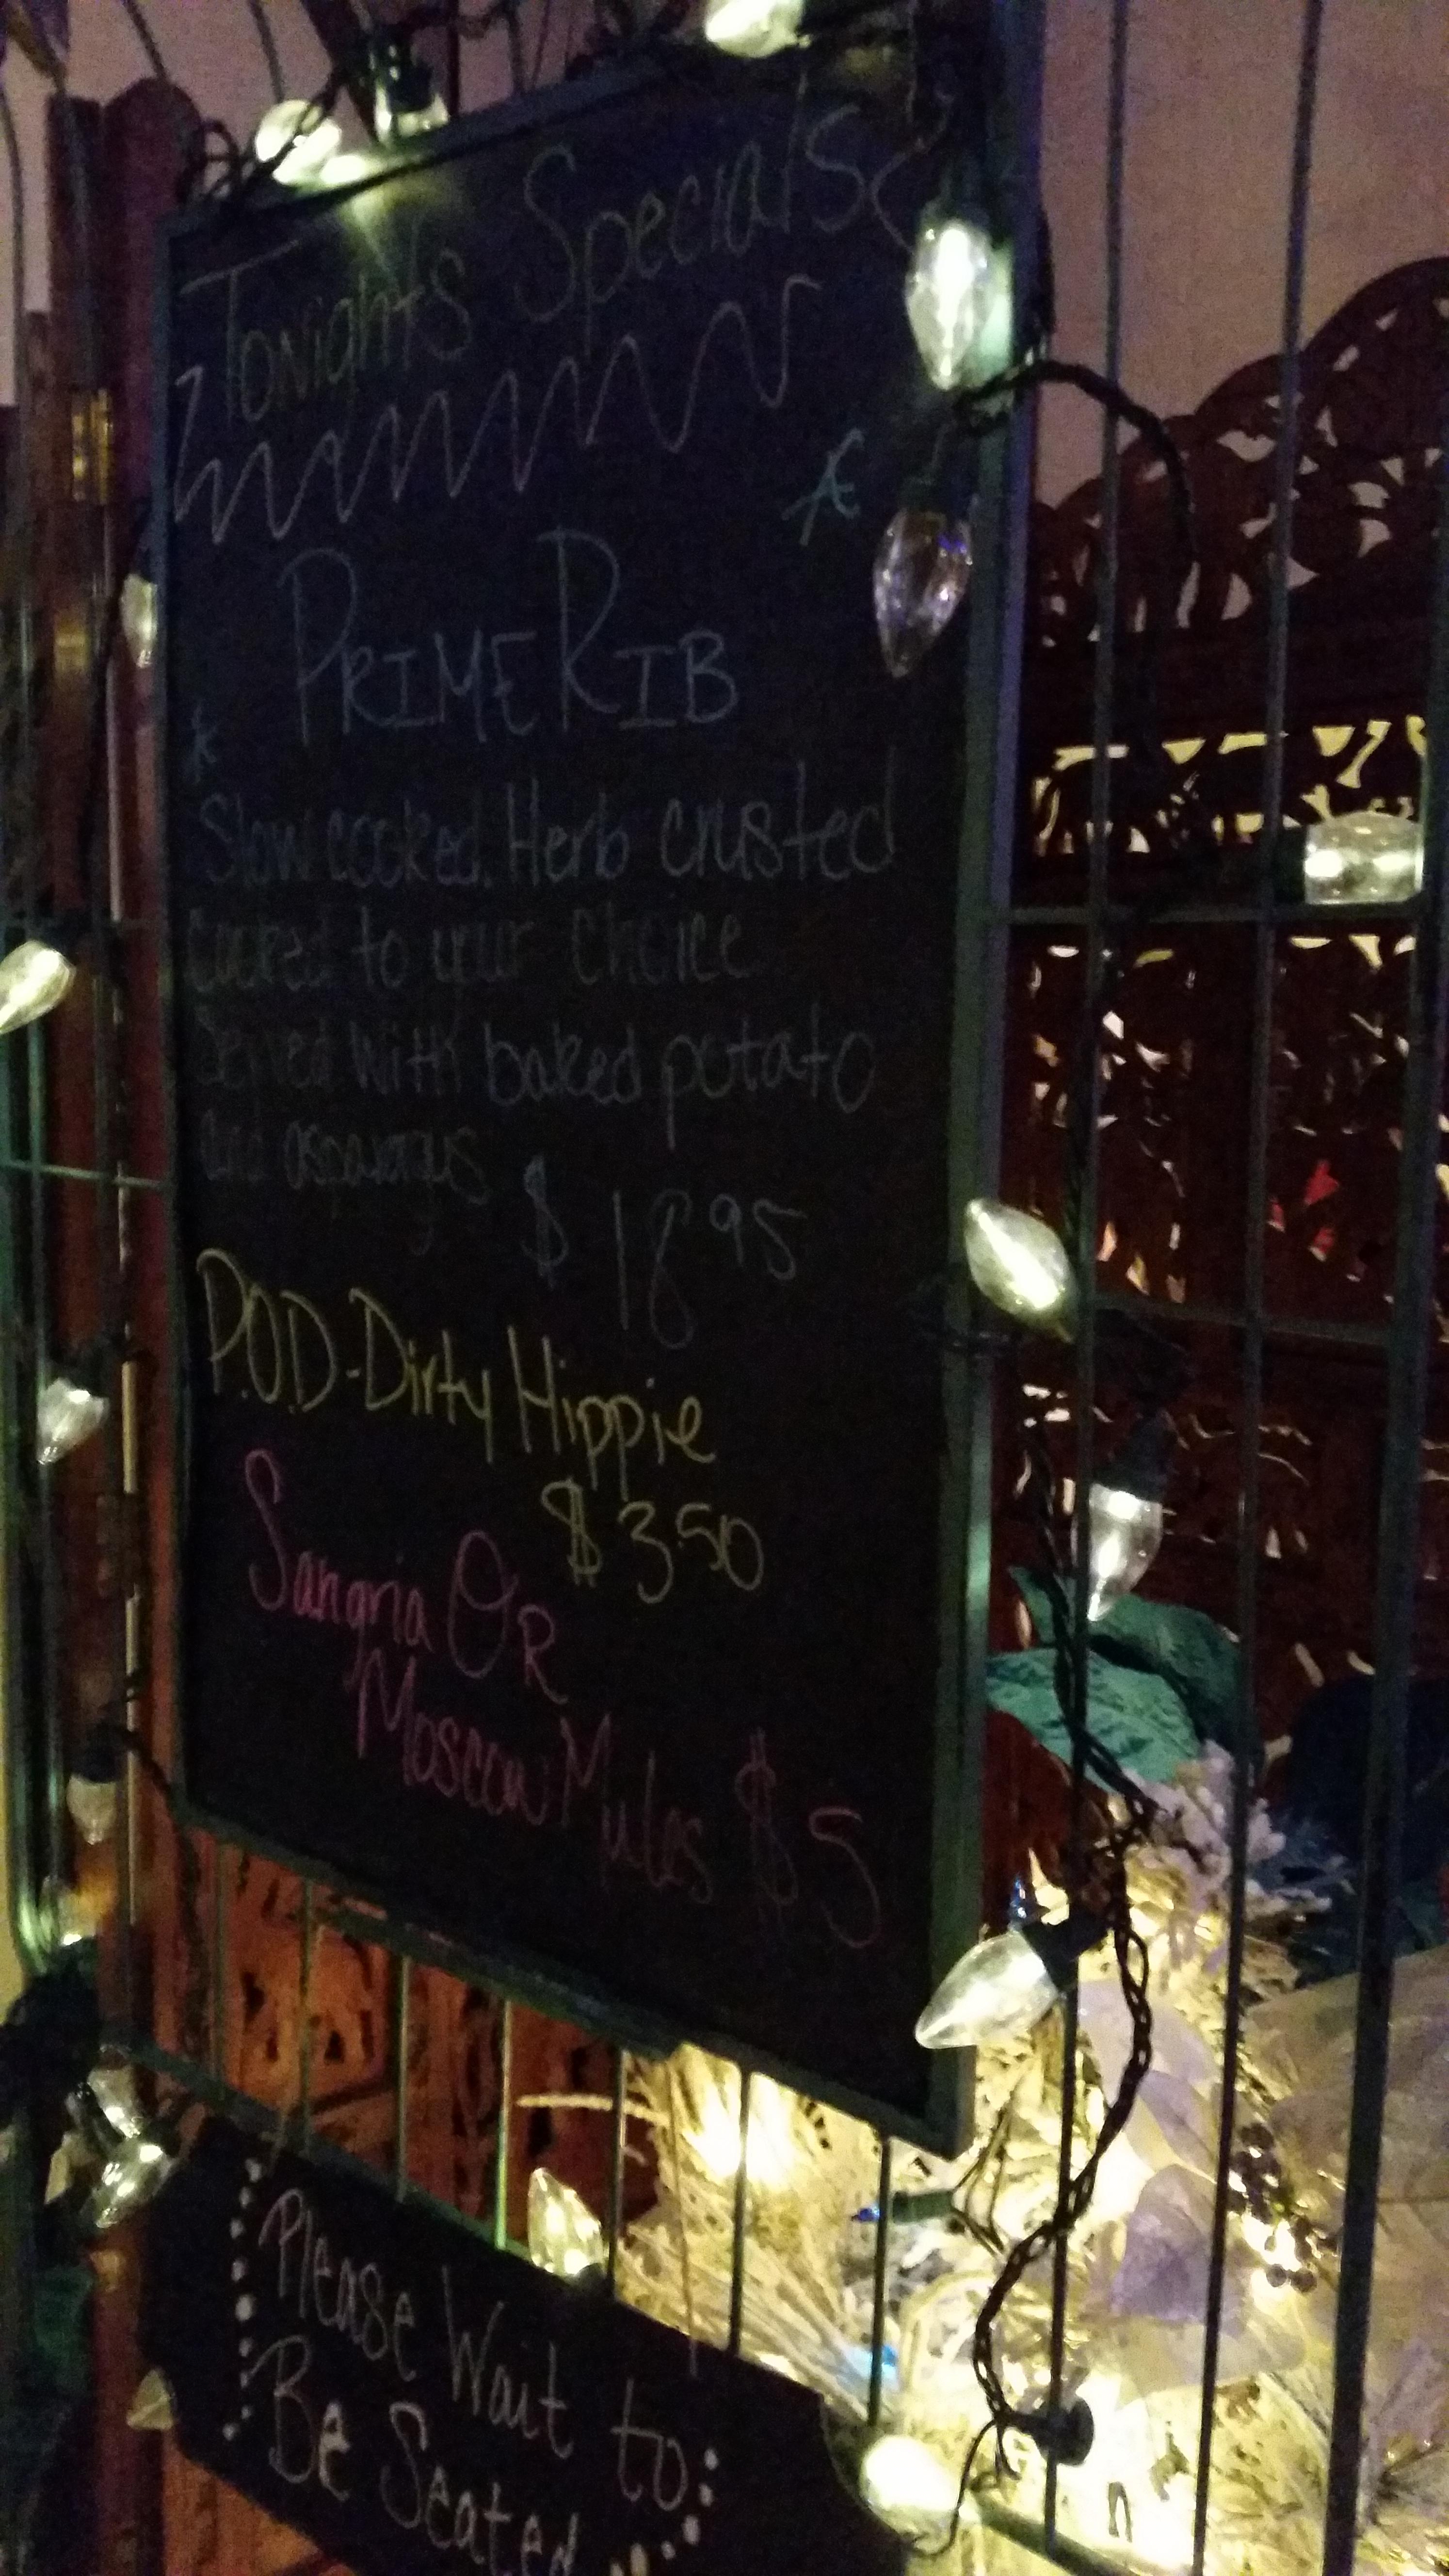 Tonights Specials
PRIME RIB
Slow cooked, Herb crusted
cooked to your choice
Served with baked potato
and asparagus
$18.95
P.O.D-Dirty Hippie
$3.50
Sangria OR
Moscow Mules $5
Please Wait to
Be Seated